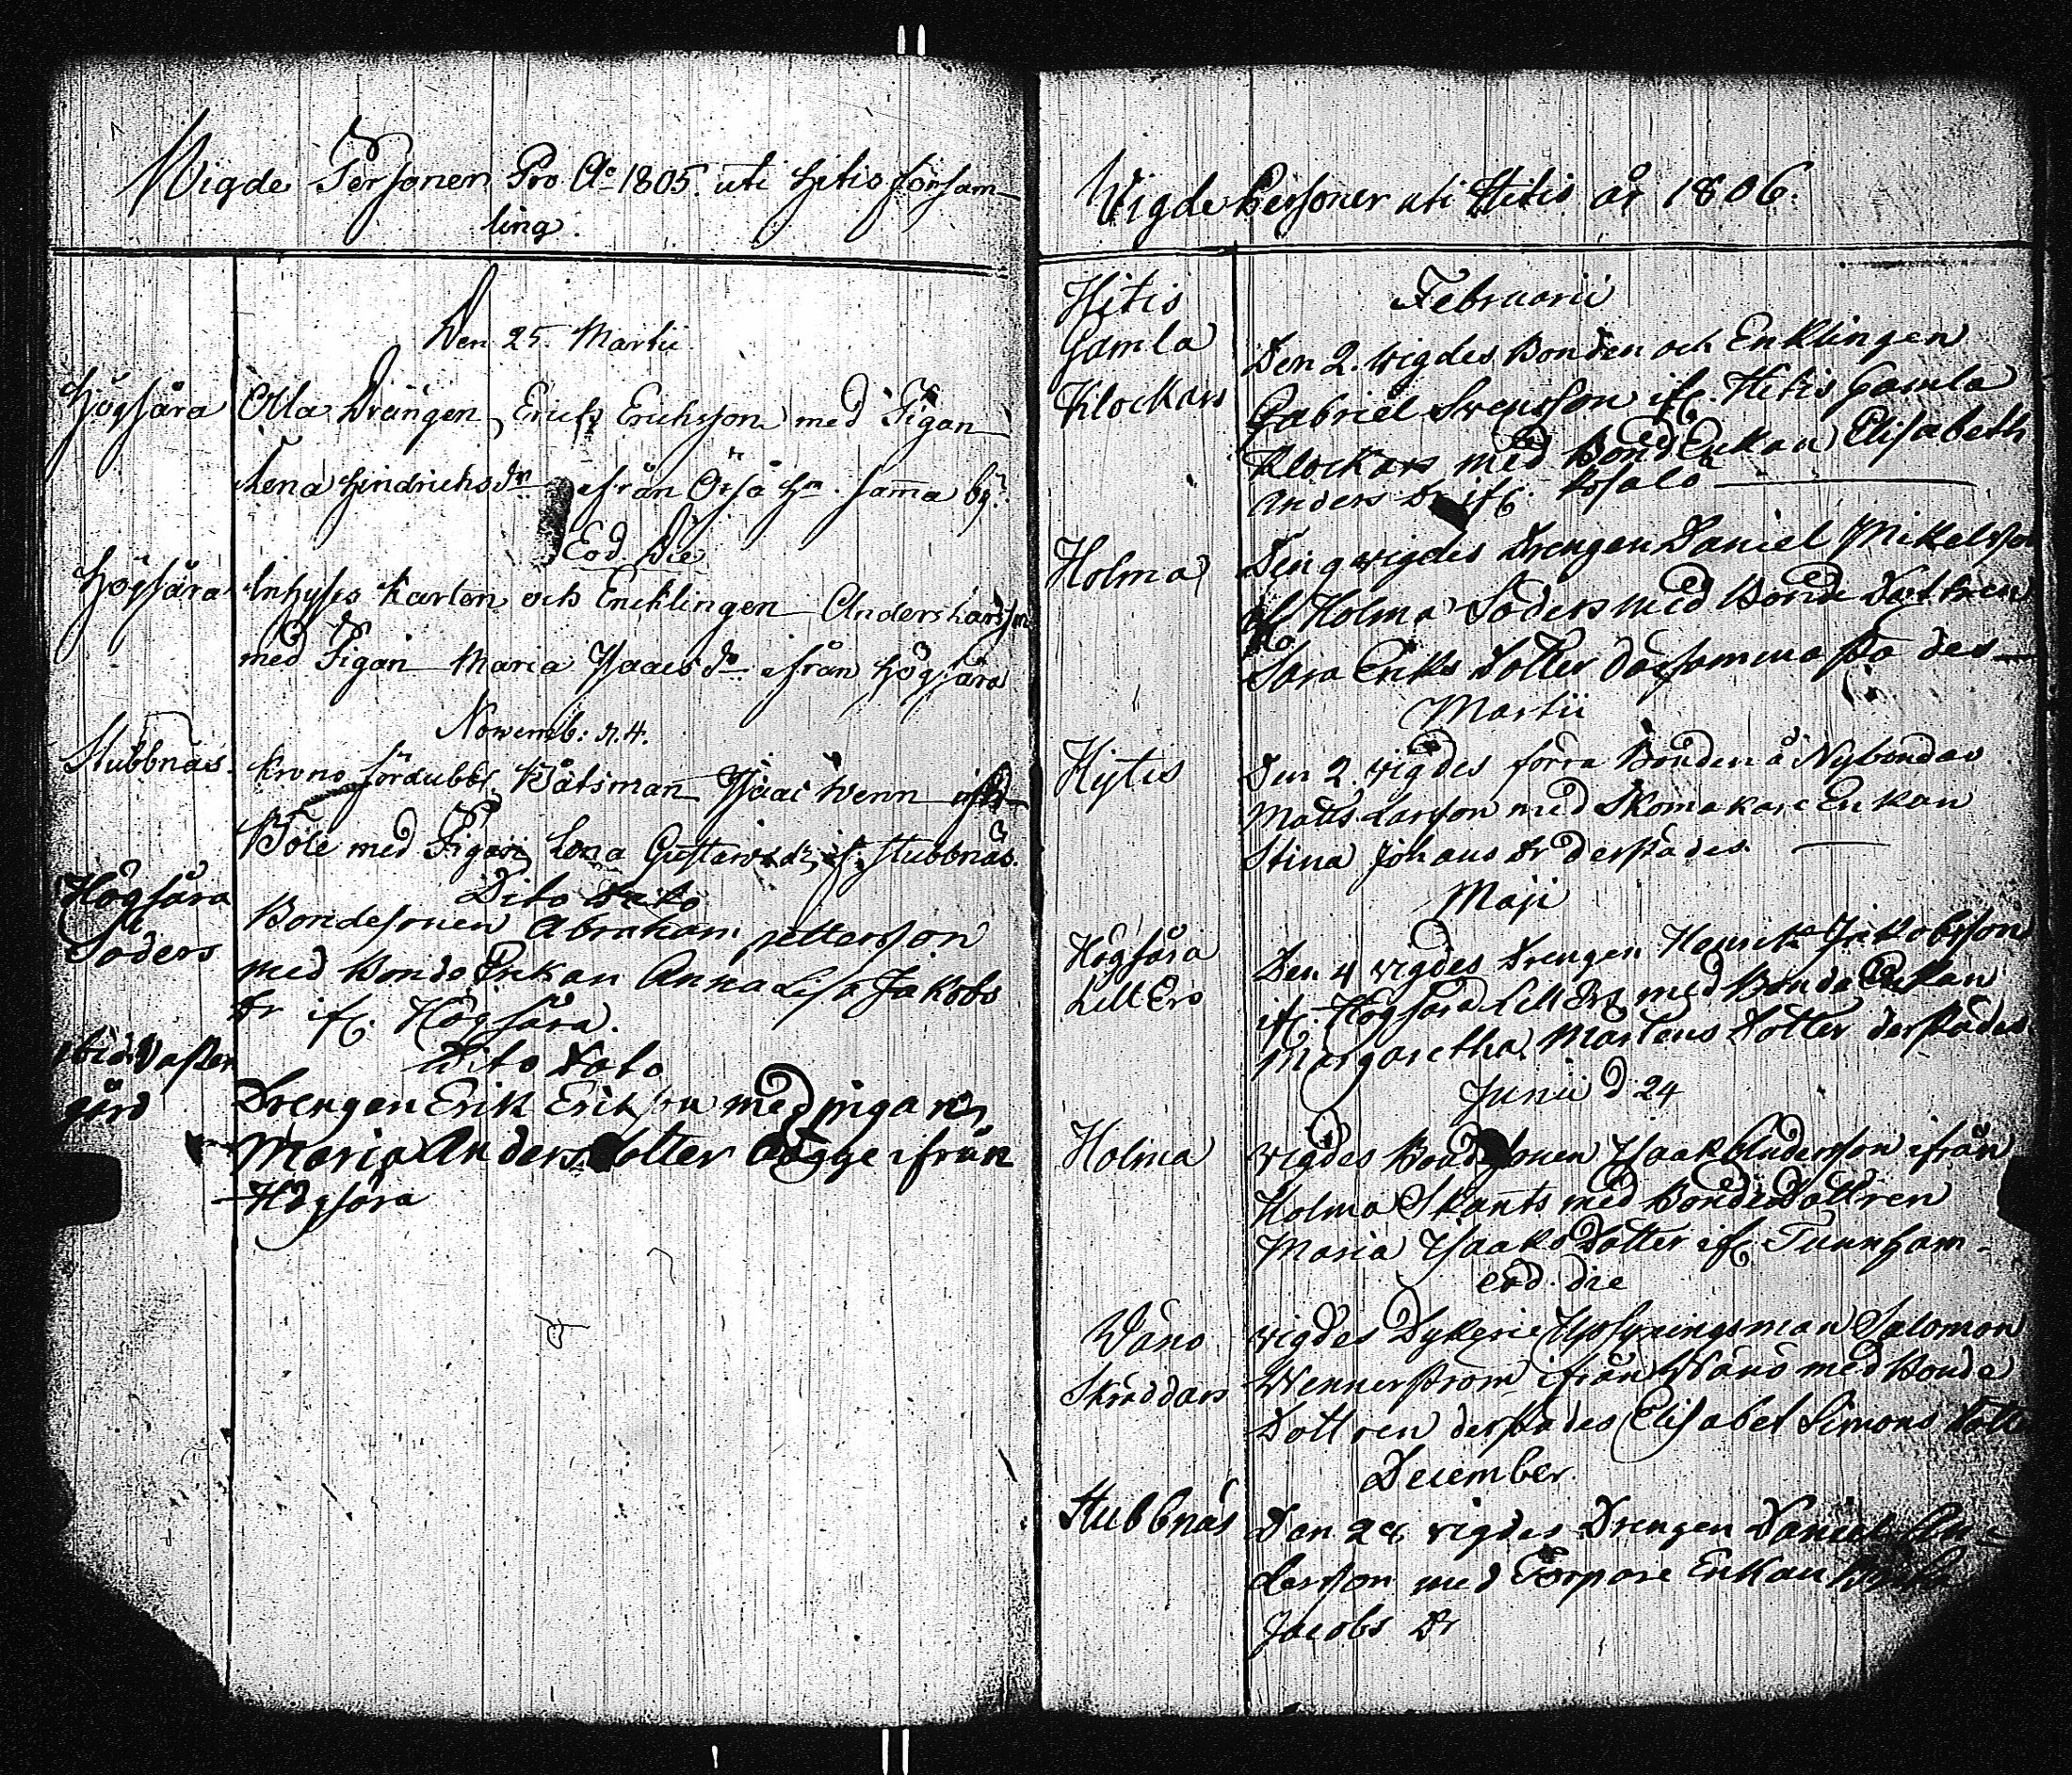 Wigde Personer Pro Ao 1805. uti Hitis församling.
Den 25. Martii
Högsåra Olla Drängen, Erich Erichsson med Pigan
Lena Hindrichsdr ifrån Örsö Hn samma by.
Eod Die
Högsåra Inhyses Karlen och Encklingen Anders Larsson
med Pigan Maria Isaacs dr ifrån Högsåra
Novemb: d. 4.
Stubbnäs. Krono fördubbl. Båtsman Isaac Wenn
Böle med Pigan Lena Gustavsdr. if. Stubbnäs.
Dito Dato
Högsåra Bondesonen Abraham Pettersson
Söders med Bonde Enkan Anna Lisa Jakobs
Dr if. Högsåra.
Dito Dato
ibid. Väster
gård Drengen Erik Erikson med pigan
Maria Andersdotter bägge ifrån
Högsåra
Wigde Personer uti Hitis år 1806.
Februarii
Hitis
Gamla Den 2. wigdes Bonden och Enklingen
Klockars Gabriel Svensson if. Hitis Gamla
Klockars med Bond Enkan Elisabeth
Anders Dr if. Rosala
Holma Den 9 wigdes Drengen Daniel Mikelsson
if. Holma Söders med Bonde Dottren
Sara Eriks Dotter dersamma städes
Martii
Hytis Den 2. wigdes förra Bonden å Nybondas
Matts Larsson med Skomakare Enkan
Stina Johans Dr derstädes.
Maji
Högsåra Den 4 wigdes Drengen Henrik Jakobsson
Lill Ers if. Högsåra Lill Ers med Bonde Enkan
Margaretha Mårtens Dotter derstädes
Junii d 24
Holma wigdes Bondesonen Isaak Andersson ifrån
Holma Skants med Bonde Dottren
Maria Isaaks Dotter if. Tunnham.
eod. die
Wänö wigdes Dykerie Uppsyningsman Salomon
Skräddars Wennerström ifrån Wänö med Bonde
Dottren derstädes Elisabet Simons Dott
December.
Stubbnäs Den 28 wigdes Drengen Daniel An-
dersson med Torpare Enkan
Jacobs Dr